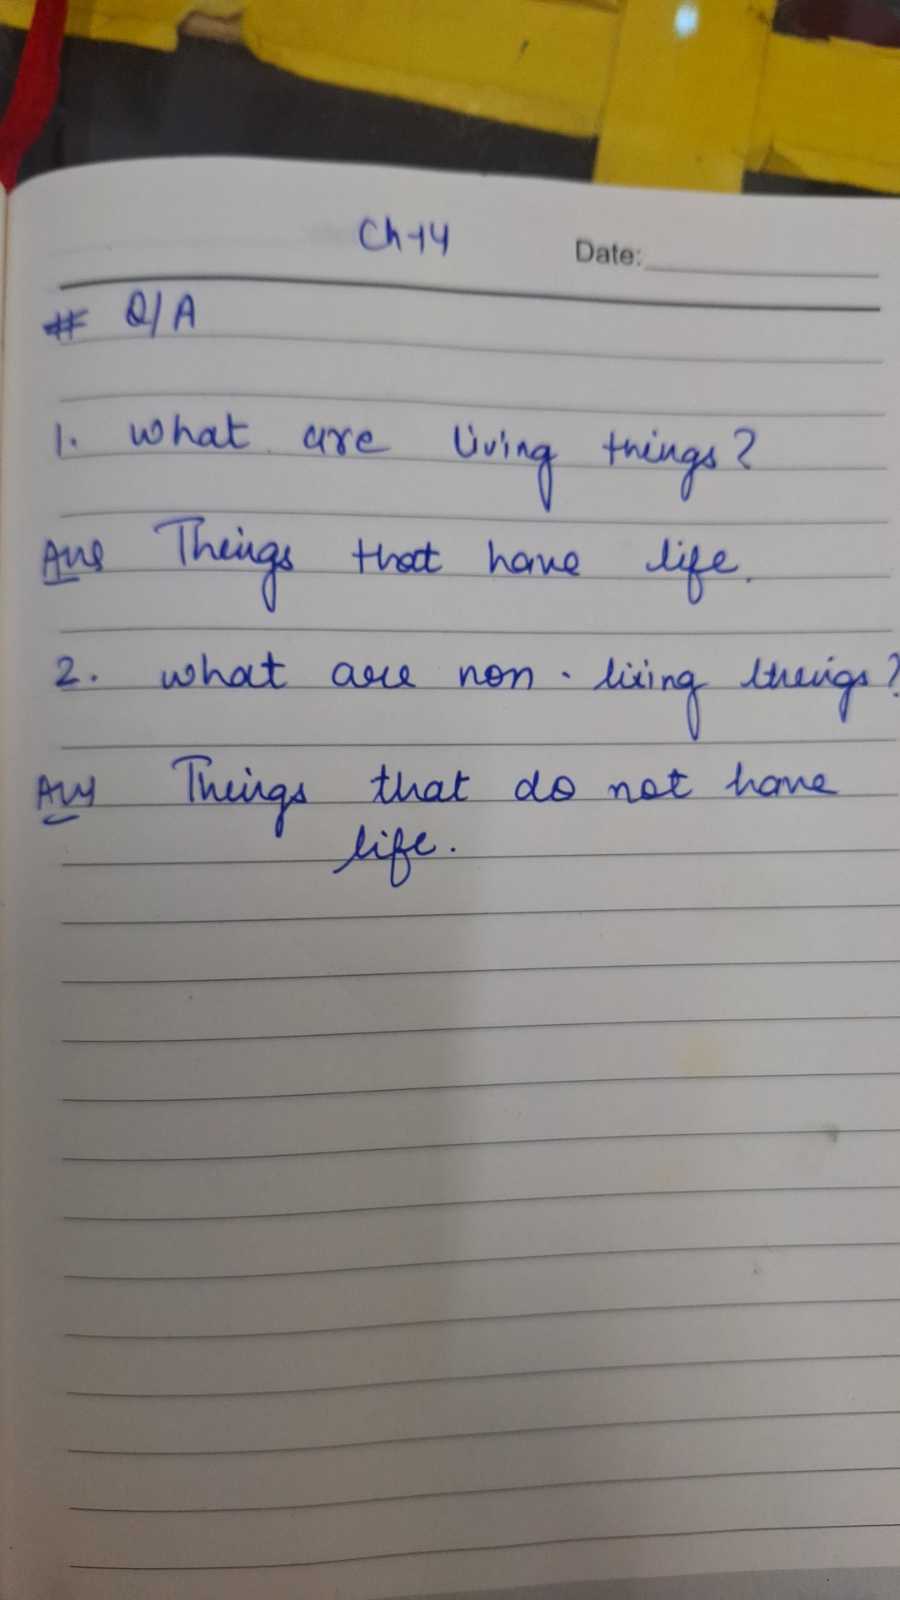 Ch-14
Date:
# Q/A
1. What are living things?
Ans Things that have life.
2. What are non-living things?
Ans Things that do not have
life.